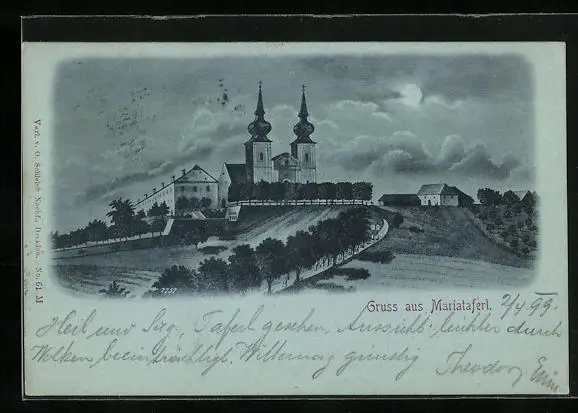 Verl. v. O. Schleich Nachf., Dresden. No. 61 M
7757
Gruss aus Mariataferl. 2/4 99.
Heil und Sieg, Taferl gesehen, Aussicht leichter durch
Wolken beeinträchtigt. Witterung günstig Theodor